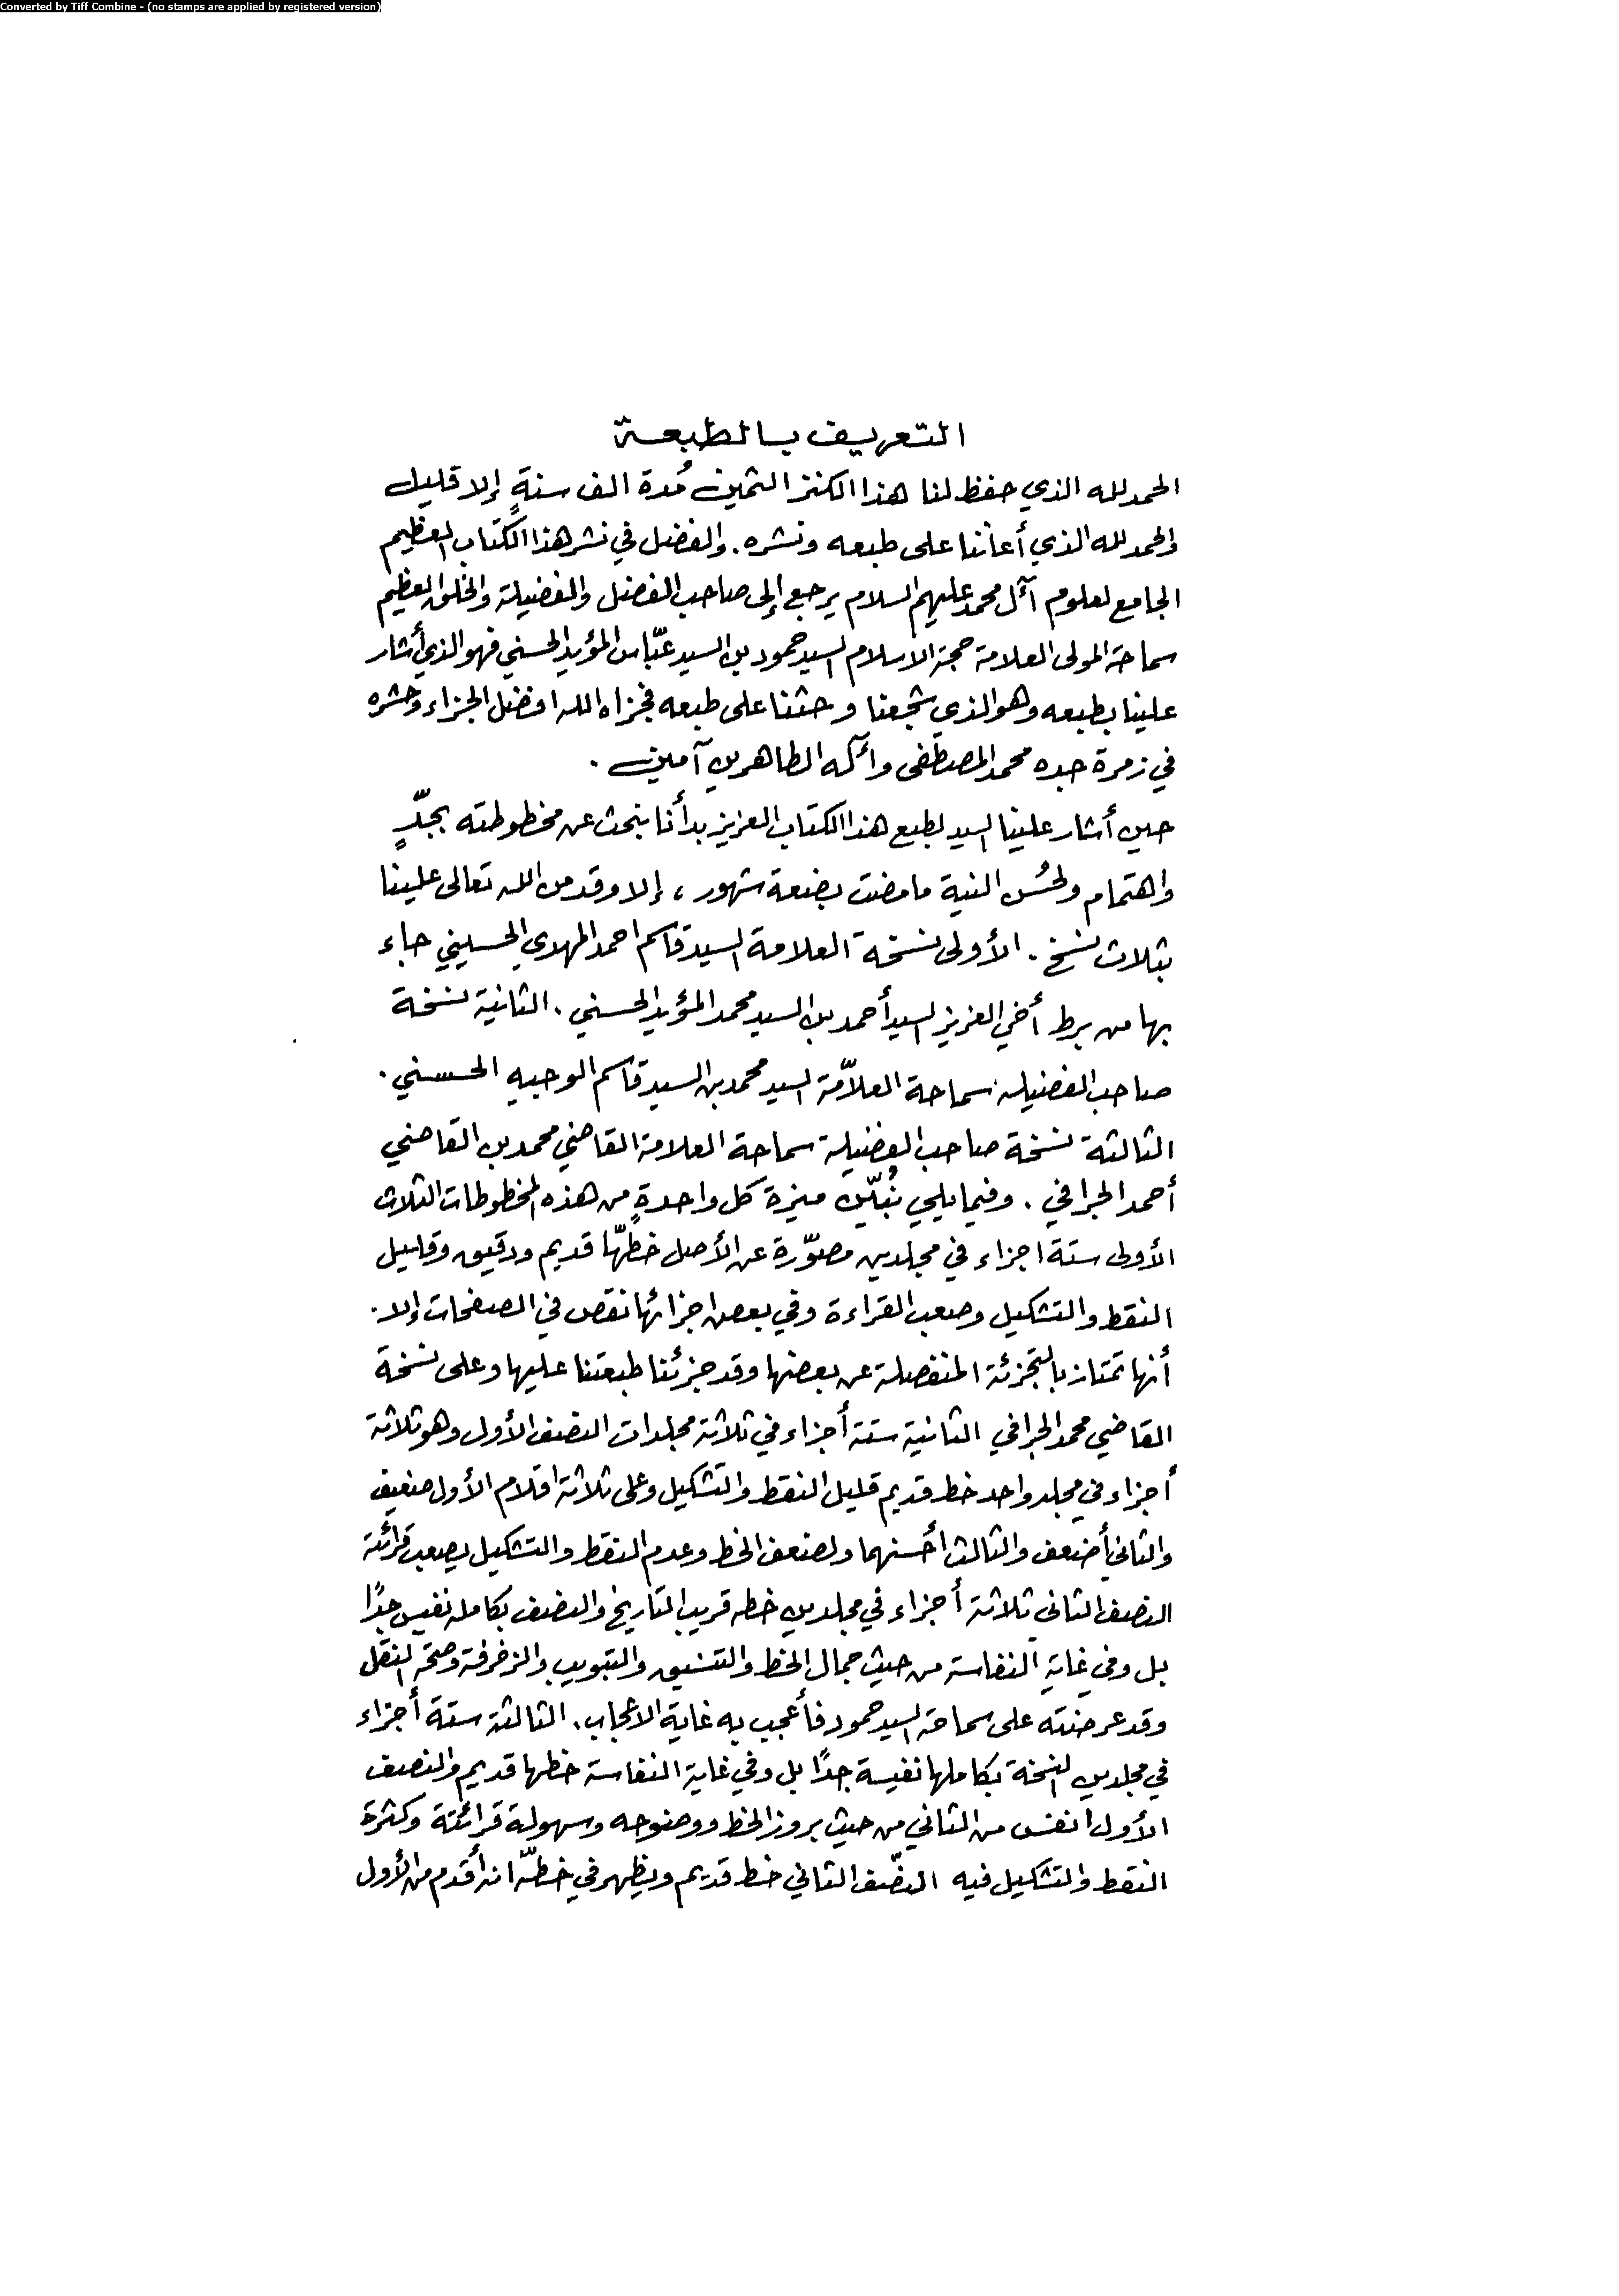 Converted by Tiff Combine - (no stamps are applied by registered version)
التعريف بالطبعة
الحمد لله الذي حفظ لنا هذا الكنز الثمين مُدة الف سنةٍ إلا قليل
والحمد لله الذي أعاننا على طبعه ونشره. والفضل في نشر هذا الكتاب العظيم
الجامع لعلوم آل محمد عليهم السلام يرجع إلى صاحب الفضل والفضيلة والخلق العظيم
سماحة المولى العلامة حجة الاسلام السيد حمود بن السيد عبّاس المؤيد الحسني فهو الذي أشار
علينا بطبعه وهو الذي شجعنا وحثنا على طبعه فجزاه الله افضل الجزاء وحشره
في زمرة جده محمد المصطفى وآله الطاهرين آمين .
حين أشار علينا السيد بطبع هذا الكتاب العزيز بدأنا نبحث عن مخطوطته بجدٍّ
واهتمام ولحُسن النية ما مضت بضعة شهور ، إلا وقد من الله تعالى علينا
بثلاث نسخ . الأولى نسخة العلامة السيد قاسم احمد المهدي الحسيني جاء
بها من برط أخي العزيز السيد أحمد بن السيد محمد المؤيد الحسني . الثانية نسخة
صاحب الفضيلة سماحة العلاّمة السيد محمد بن السيد قاسم الوجيه الحسني .
الثالثة نسخة صاحب الفضيلة سماحة العلامة القاضي محمد بن القاضي
أحمد الجرافي . وفيما يلي نُبيّن ميزة كل واحدةٍ من هذه المخطوطات الثلاث
الأولى ستة اجزاء في مجلدين مصوّرة عن الأصل خطّها قديم ودقيق وقليل
النقط والتشكيل وصعب القراءة وفي بعض اجزائها نقص في الصفحات إلا .
أنها تمتاز بالتجزئة المنفصلة عن بعضها وقد جزئنا طبعتنا عليها وعلى نسخة
القاضي محمد الجرافي الثانية ستة أجزاء في ثلاثة مجلدات النصف الأول وهو ثلاثة
أجزاء في مجلد واحد خط قديم قليل النقط والتشكيل وعلى ثلاثة اقلام الأول ضعيف
والثاني أضعف والثالث أحسنهما ولضعف الخط وعدم النقط والتشكيل يصعب قرائته
النصف الثاني ثلاثة أجزاء في مجلدين خطه قريب التاريخ والنصف بكامله نفيس جدًا
بل وفي غاية النفاسة من حيث جمال الخط والتنسيق والتبويب والزخرفة وصحة النقل
وقد عرضته على سماحة السيد حمود فأعجب به غاية الاعجاب . الثالثة ستة أجزاء
في مجلدين النسخة بكاملها نفيسة جدًا بل وفي غاية النفاسة خطها قديم والنصف
الأول انفس من الثاني من حيث بروز الخط ووضوحه وسهولة قرائته وكثرة
النقط والتشكيل فيه النصف الثاني خط قديم ويظهر في خطّه انه أقدم من الأول